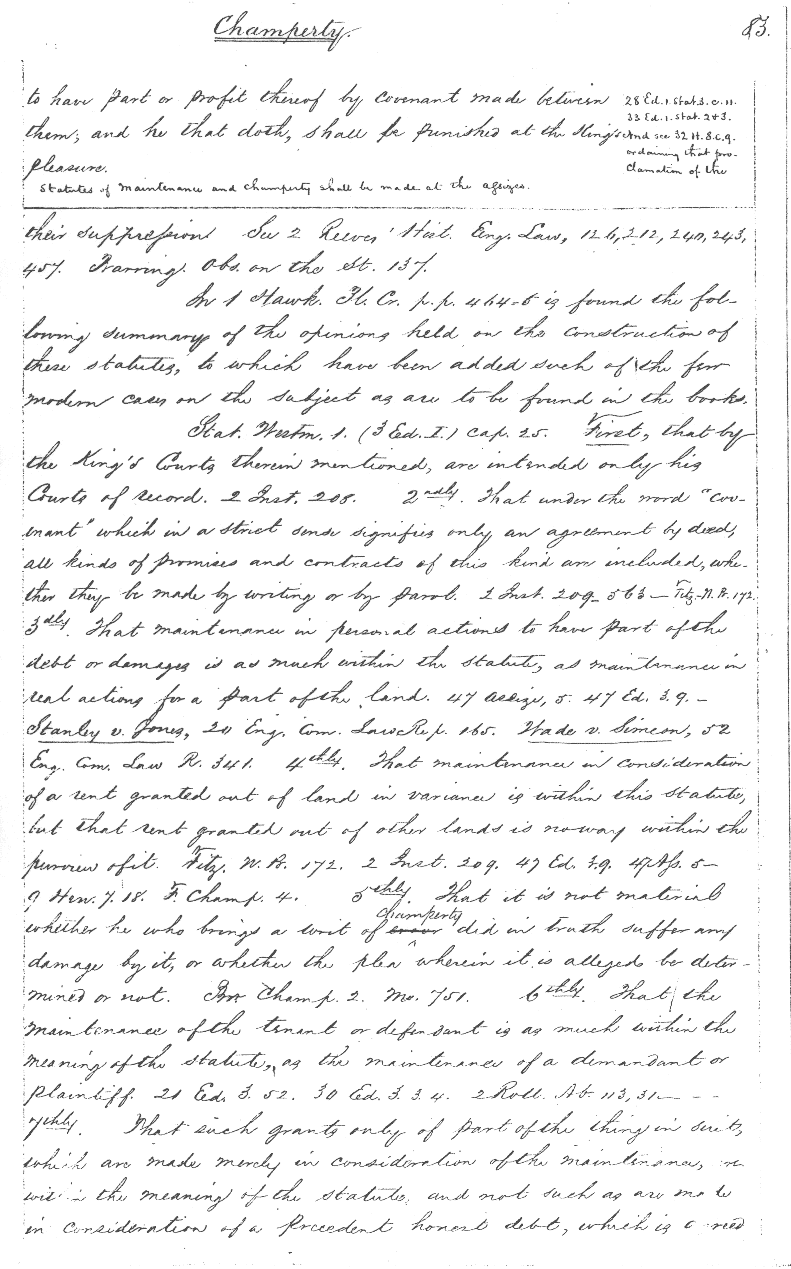 Champerty.
83.
to have part or profit thereof by covenant made between
them; and he that doth, shall be punished at the King's
pleasure.
28 Ed. 1. Stat. 3. c. 11.
33 Ed. 1. Stat. 2 & 3.
And see 32 H. 8. c. 9.
ordaining that pro-
clamation of the
Statutes of maintenance and champerty shall be made at the assizes.
their suppression See 2 Reeves' Hist. Eng. Law, 126, 212, 240, 243,
457. Barring. Obs. on the St. 137.
In 1 Hawk. Pl. Cr. p.p. 464-5 is found the fol-
lowing summary of the opinions held on the construction of
these statutes, to which have been added such of the few
modern cases on the subject as are to be found in the books.
Stat. Westm. 1. (3 Ed. I.) cap. 25. First, that by
the King's Courts therein mentioned, are intended only his
Courts of record. 2 Inst. 208. 2ndly. That under the word "cov-
enant" which in a strict sense signifies only an agreement by deed,
all kinds of promises and contracts of this kind are included, whe-
ther they be made by writing or by parol. 2 Inst. 209_ 563 — Fitz. N. B. 172.
3dly. That maintenance in personal actions to have part of the
debt or damages is as much within the statute, as maintenance in
real actions for a part of the land. 47 assize, 5. 47 Ed. 3. 9. –
Stanley v. Jones, 20 Eng. Com. Law Rep. 165. Wade v. Simeon, 52
Eng. Com. Law R. 341. 4thly. That maintenance in consideration
of a rent granted out of land in variance is within this statute,
but that rent granted out of other lands is noway within the
purview of it. Fitz. N. B. 172. 2 Inst. 209. 47 Ed. 3. 9. 47 Ass. 5 –
9 Hen. 7. 18. F. Champ. 4. 5thly. That it is not material
whether he who brings a writ of champerty did in truth suffer any
damage by it, or whether the plea wherein it is alleged be deter-
mined or not. Bro Champ. 2. Mo. 751. 6thly. That the
maintenance of the tenant or defendant is as much within the
meaning of the statute, as the maintenance of a demandant or
plaintiff. 21 Ed. 3. 52. 30 Ed. 3. 3. 4. 2 Roll. Ab. 113, 31 — - -
7thly. That such grants only of part of the thing in suit,
which are made merely in consideration of the maintenance,
the meaning of the statute, and not such as are made
in consideration of a precedent honest debt, which is agreed